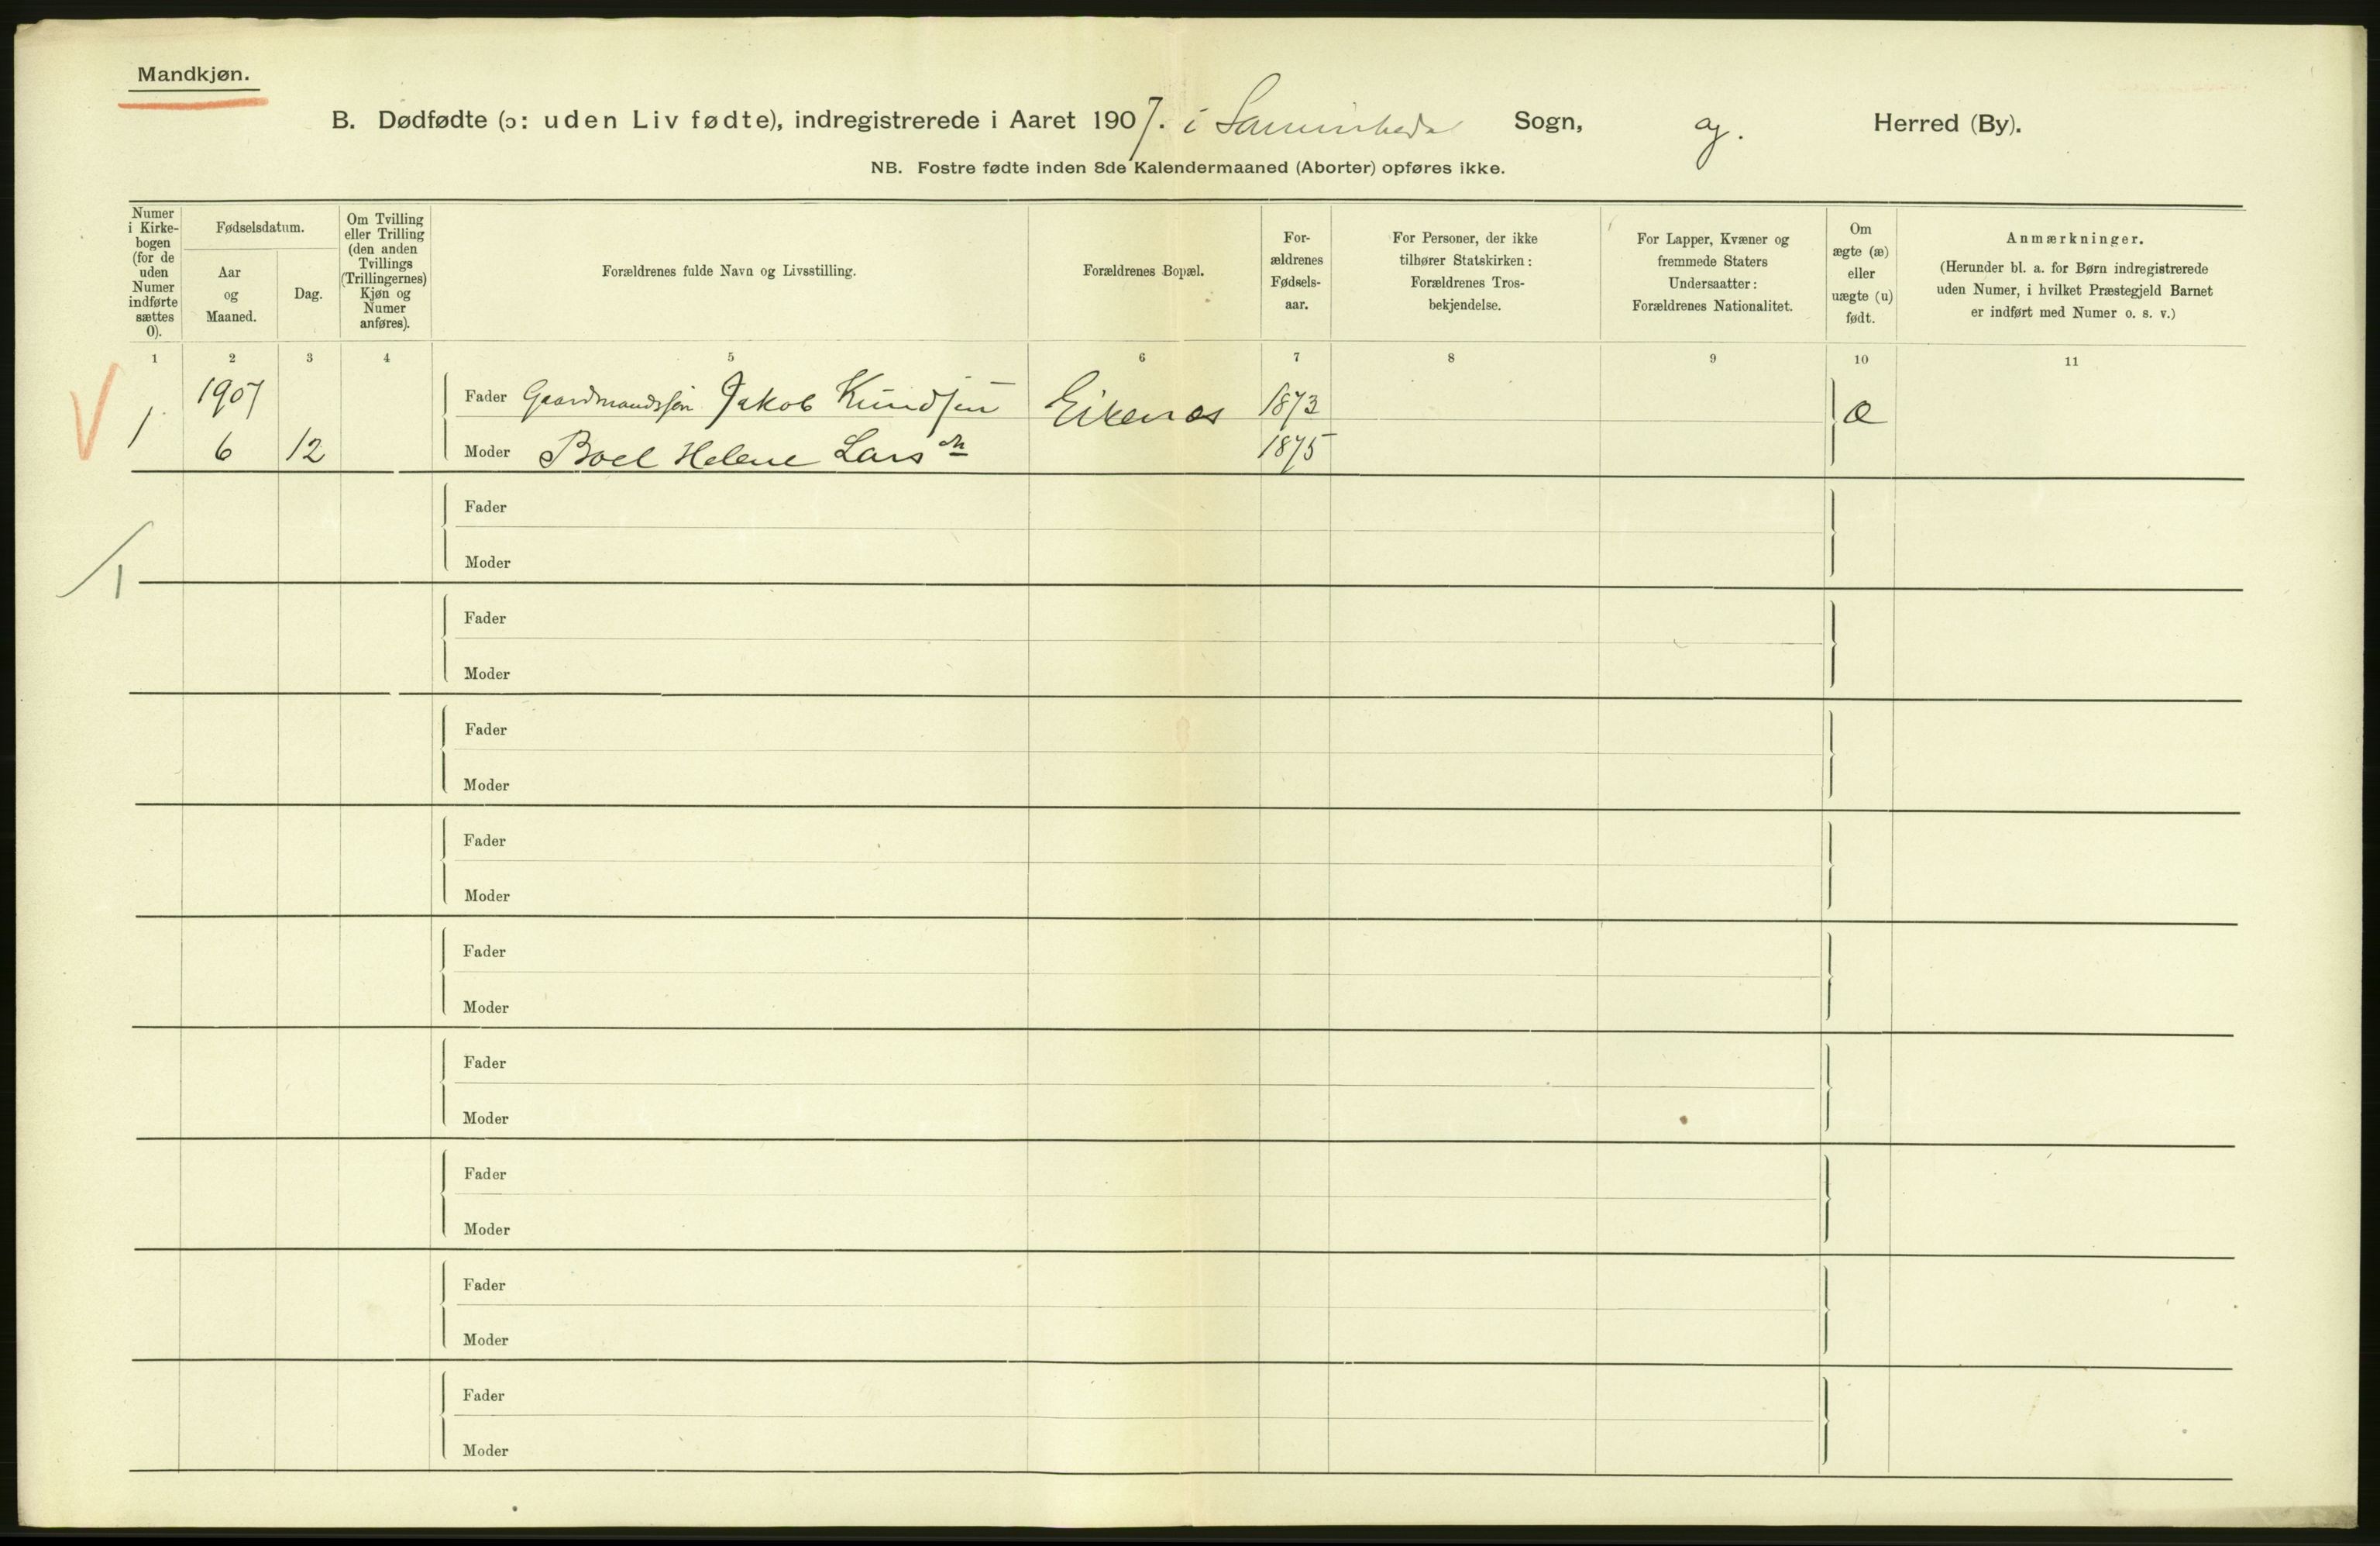 Mandkjøn.
B. Dødfødte (ɔ: uden Liv fødte), indregistrerede i Aaret 1907. i Sogn, og. Herred (By).
NB. Fostre fødte inden 8de Kalendermaaned (Aborter) opføres ikke.
Numer
i Kirke-
bogen
(for de
uden
Numer
indførte
sættes
0).
Fødselsdatum.
Aar
og
Maaned.
Dag.
Om Tvilling
eller Trilling
(den anden
Tvillings
(Trillingernes)
Kjøn og
Numer
anføres).
Forældrenes fulde Navn og Livsstilling.
Forældrenes Bopæl.
For-
ældrenes
Fødsels-
aar.
For Personer, der ikke
tilhører Statskirken:
Forældrenes Tros-
bekjendelse.
For Lapper, Kvæner og
fremmede Staters
Undersaatter:
Forældrenes Nationalitet.
Om
ægte (æ)
eller
uægte (u)
født.
Anmærkninger.
(Herunder bl. a. for Børn indregistrerede
uden Numer, i hvilket Præstegjeld Barnet
er indført med Numer o. s. v.)
1 2 3 4 5 6 7 8 9 10 11
1. 1907 Fader Gaardmandssøn Jakob Kundsen Eikenæs 1873 æ
6 12 Moder Boel Helene Larsdn 1875
Fader
Moder
1
Fader
Moder
Fader
Moder
Fader
Moder
Fader
Moder
Fader
Moder
Fader
Moder
Fader
Moder
Fader
Moder